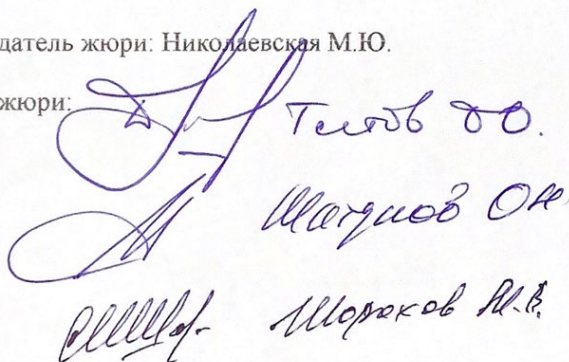 датель жюри: Николаевская М.Ю.
жюри:
Титов
Шатунов ОН
Шораков М.В.